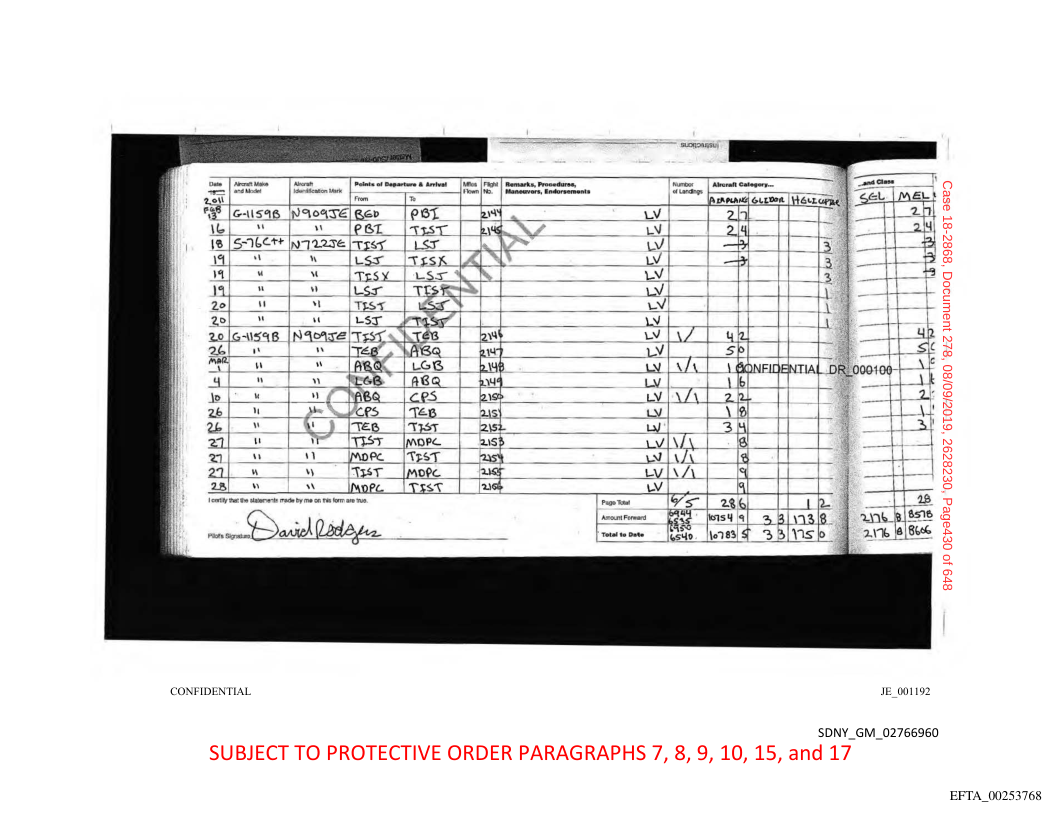 SUBJECT TO
Date Aircraft Make and Model Aircraft Identification Mark Points of Departure & Arrival Miles Flown Flight No. Remarks, Procedures, Maneuvers, Endorsements Number of Landings Aircraft Category... ...and Class
2011 From To AIRPLANE GLIDER HELICOPTER SEL MEL
FEB 13 G-1159B N909JE BED PBI 2144 LV 2 7 2 7
16 " " PBI TIST 2145 LV 2 4 2 4
18 S-76C++ N722JE TIST LSJ LV 3 3 3
19 " " LSJ TISX LV 3 3 3
19 " " TISX LSJ LV 3 3
19 " " LSJ TIST LV 1
20 " " TIST LSJ LV 1
20 " " LSJ TIST LV 1
20 G-1159B N909JE TIST TEB 2146 LV \/ 4 2 42
26 " " TEB ABQ 2147 LV 5 0
MAR 1 " " ABQ LGB 2148 LV \/\ 1 CONFIDENTIAL DR_000100
4 " " LGB ABQ 2149 LV 1 6
10 " " ABQ CPS 2150 LV \/\ 2 2
26 " " CPS TEB 2151 LV 1 8
26 " " TEB TIST 2152 LV 3 4
27 " " TIST MDPC 2153 LV \/\ 8
27 " " MDPC TIST 2154 LV \/\ 8
27 " " TIST MDPC 2155 LV \/\ 9
28 " " MDPC TIST 2156 LV 9
I certify that the statements made by me on this form are true. Page Total 6/5 28 6 1 2 28
Amount Forward 6944 6535 10754 9 3 3 173 8 2176 8 8578
Pilot's Signature David Rodgers Total to Date 6950 6540 10783 5 3 3 175 0 2176 8 8606
CONFIDENTIAL
Case 18-2868, Document 278, 08/09/2019, 2628230, Page430 of 648
CONFIDENTIAL JE_001192
SDNY_GM_02766960
SUBJECT TO PROTECTIVE ORDER PARAGRAPHS 7, 8, 9, 10, 15, and 17
EFTA_00253768